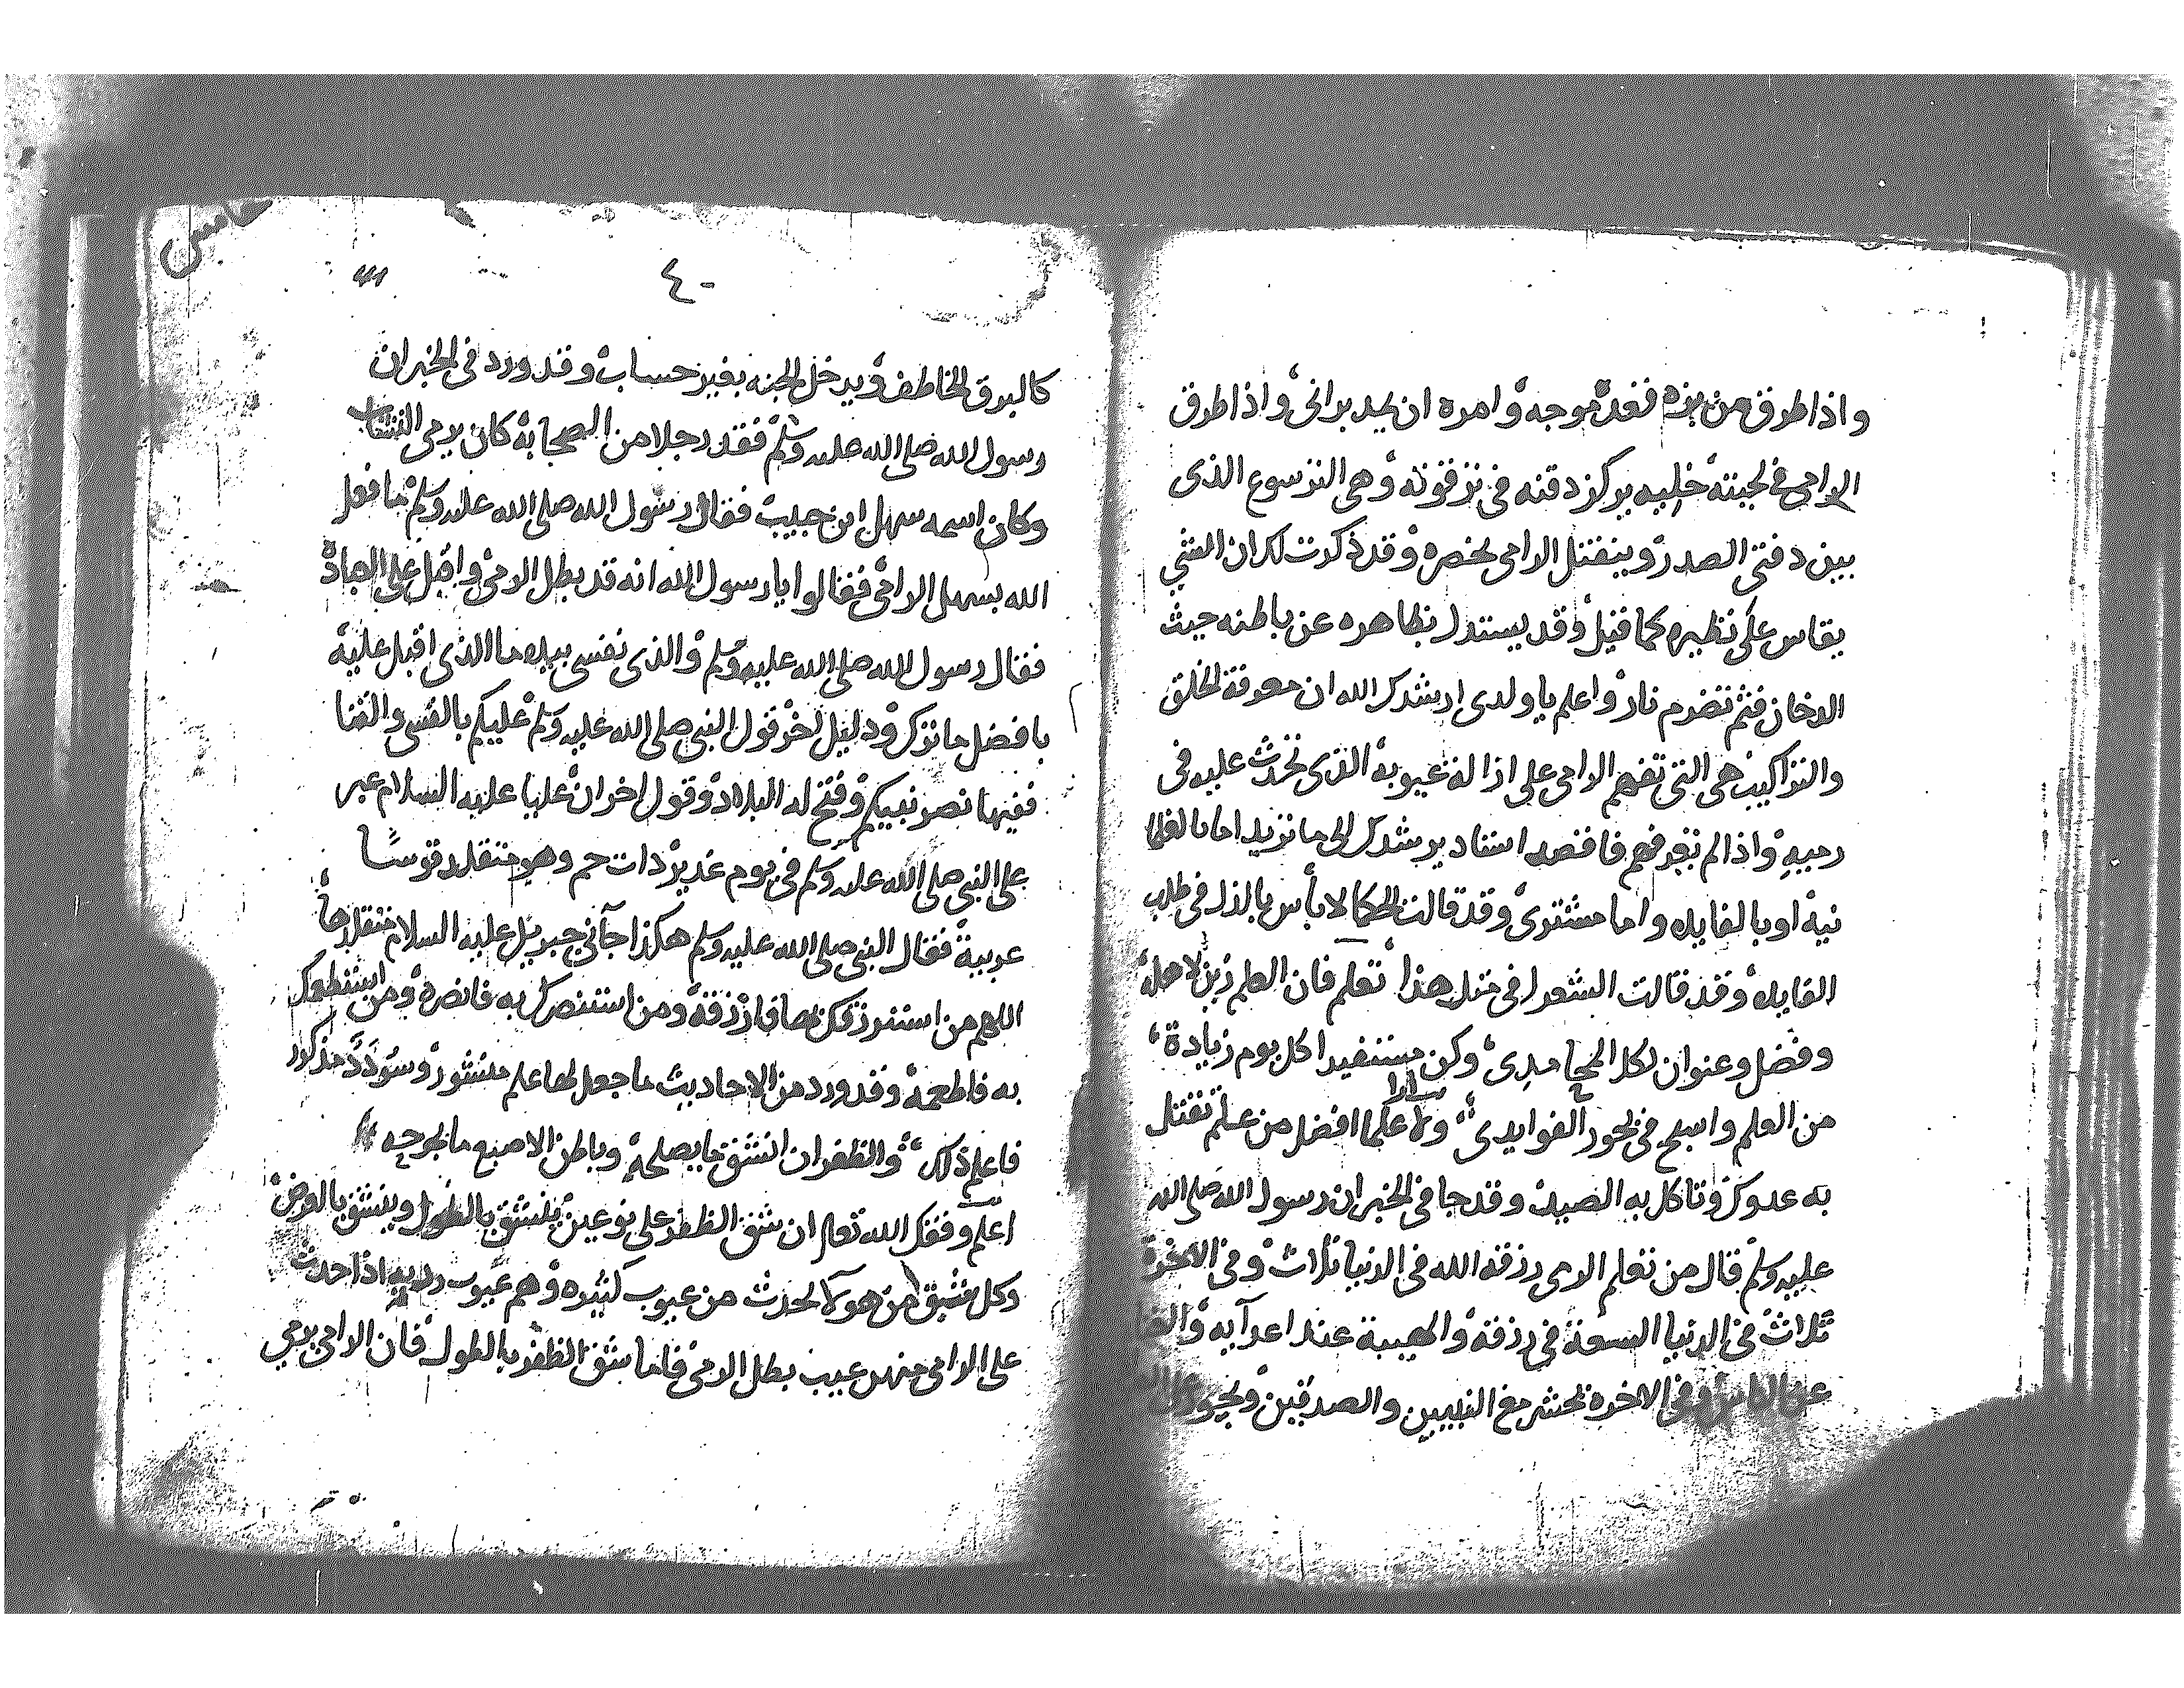 واذا طرق من بزه فغد موجه وامره ان يمد برانى واذا طرق
الرامى فى لحيته خليه يركز دقنه فى نزقوته وهى النزسوع الذى
بين دفتى الصدر وينفتل الرامى بخصره وقد ذكرت لك ان الشي
يقاس على نظيره كما قيل وقد يستدل بظاهره عن باطنه حيث
الدخان فثم تضرم نار واعلم يا ولدى ارشدك الله ان معرفة الخلق
والتراكيب هى التى تفهم الرامى على ازالة عيوبه الذى تحدث عليه فى
رميه واذا لم تعرفهم فاقصد استاد يرشدك الى ما تزيد اما بالغلما
نيه او بالفايده واما مشترى وقد قالت الحكما لا بأس بالذل فى طلب
الفايده وقد قالت الشعرا فى مثل هذا تعلم فان العلم زين لاهله
وفضل وعنوان لكل المحامدى وكن مستفيدا كل يوم زيادة
من العلم واسبح فى بحور الفوايدى ولا علما افضل من علم تقتل
به عدوك وتاكل به الصيد وقد جا فى الخبر ان رسول الله صلى الله
عليه وسلم قال من تعلم الرمى رزقه الله فى الدنيا ثلاث وفى الاخرة
ثلاث فى الدنيا السعة فى رزقه والهيبة عند اعدآيه
عن الناس وفى الاخره يحشر مع النبيين والصديقين ويجوز
خامس
٤٠
كالبرق الخاطف ويدخل الجنه بغير حساب وقد ورد فى الخبر ان
رسول الله صلى الله عليه وسلم فقد رجلا من الصحابة كان يرمى النشاب
وكان اسمه سهل ابن حبيب فقال رسول الله صلى الله عليه وسلم ما فعل
الله بسهل الرامى فقالوا يا رسول الله انه قد بطل الرمى واقبل على العبادة
فقال رسول الله صلى الله عليه وسلم والذى نفسى بيده ما الذى اقبل عليه
بافضل ما ترك ودليل اخر قول النبى صلى الله عليه وسلم عليكم بالقسى والقنا
ففيها نصر نبيكم وفتح له البلاد وقول اخر ان عليا عليه السلام عبر
على النبى صلى الله عليه وسلم فى يوم غدير ذات خم وهو متقلد قوسًا
عربية فقال النبى صلى الله عليه وسلم هكذا جآنى جبريل عليه السلام متقلدها
اللهم من استرزقك بها فارزقه ومن استنصرك به فانصره ومن استطعمك
به فاطعمه وقد ورد من الاحاديث ما جعل لها علم منشور وسؤدد مذكور
فاعلم ذلك والظفر ان انشق ما يصلحه وباطن الاصبع ما يوجعه
اعلم وفقك الله تعالى ان شق الظفر على نوعين ينشق بالطول وينشق بالعرض
وكل شق من هولآ لحدث من عيوب كثيره وهم عيوب رديه اذا حدث
على الرامى منهن عيب بطل الرمى فاما شق الظفر بالطول فان الرامى يرمي